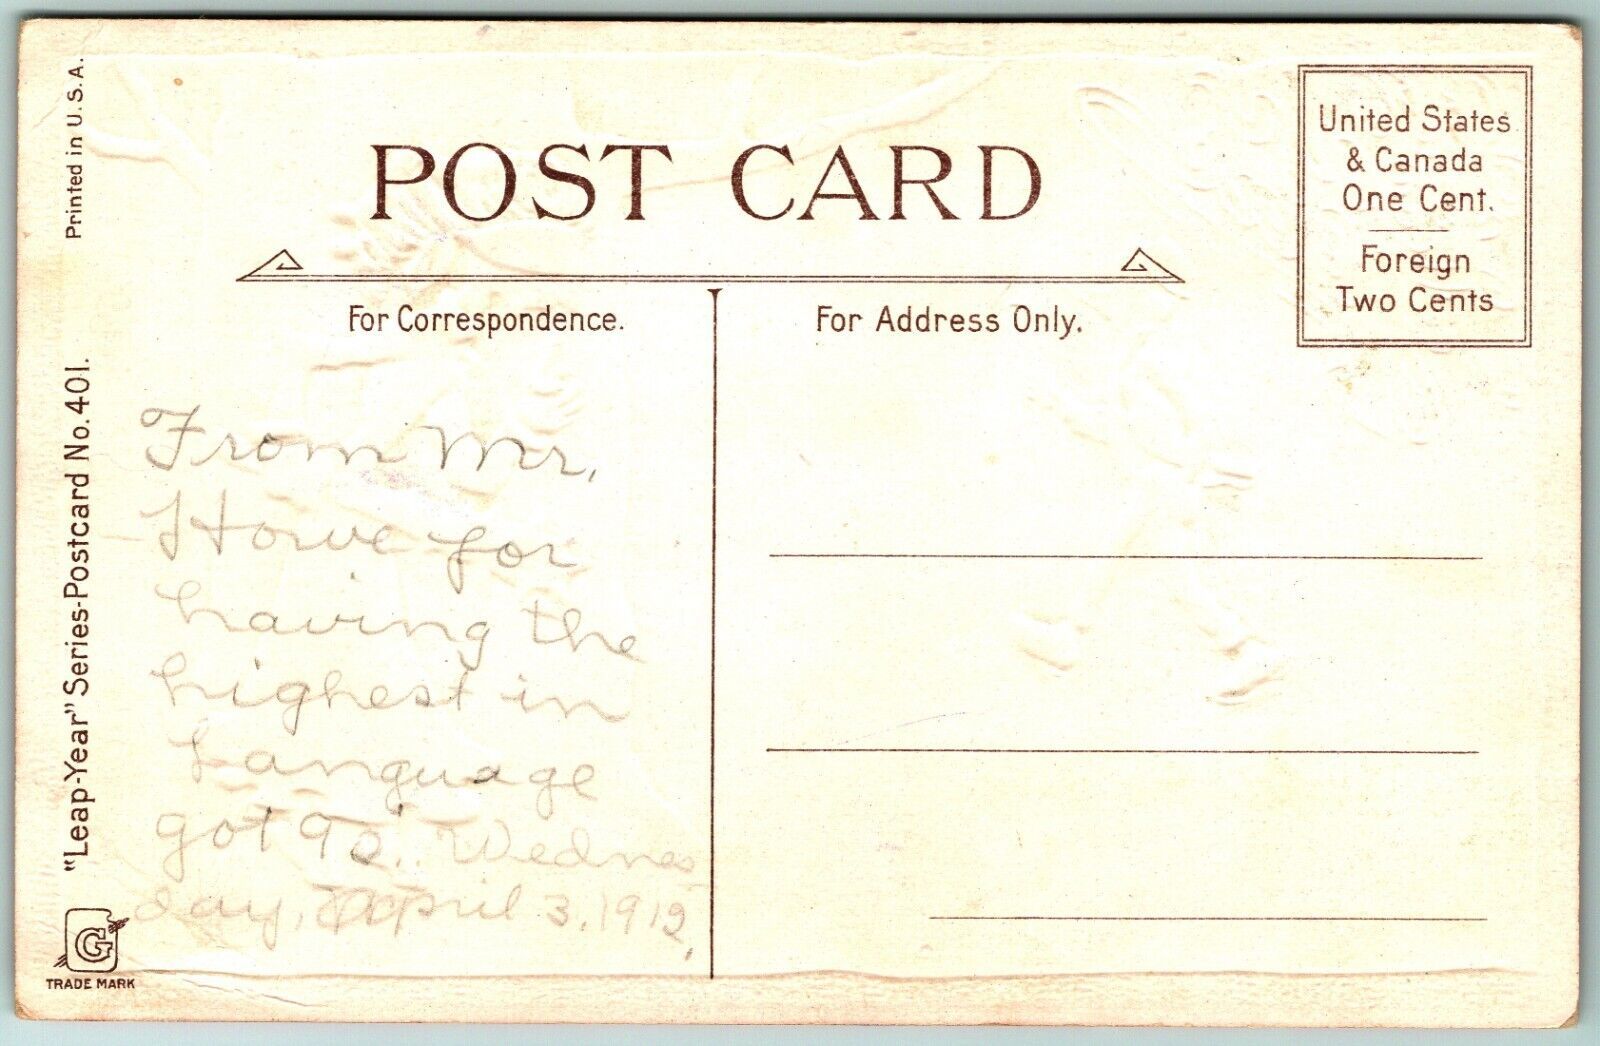 Printed in U.S.A.
"Leap-Year" Series-Postcard No. 401.
G
TRADE MARK
POST CARD
For Correspondence.
For Address Only.
United States
& Canada
One Cent.
Foreign
Two Cents
From Mr.
Howe for
having the
highest in
Language
got 92.. Wednes
day, April 3, 1912.